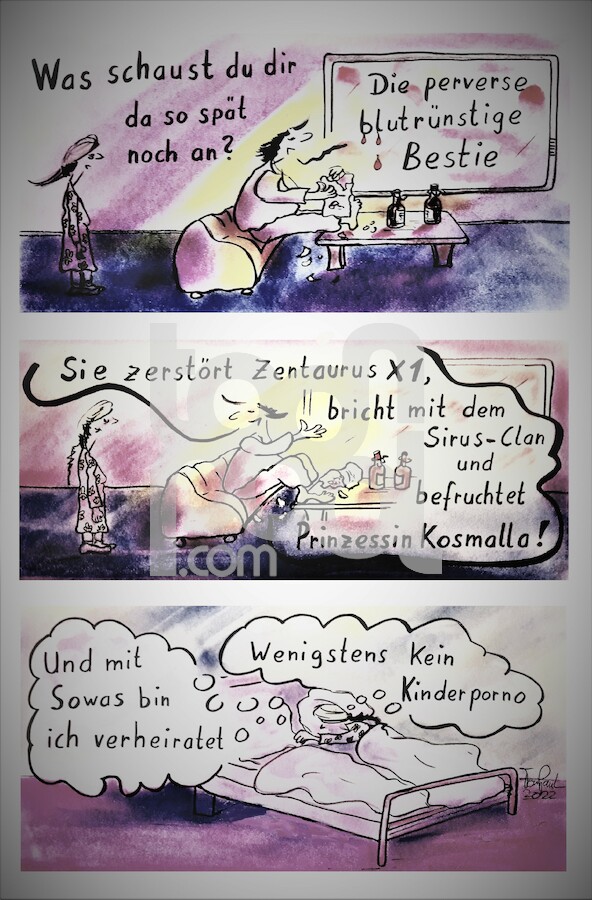 Was schaust du dir
da so spät
noch an?
Die perverse
blutrünstige
Bestie
Sie zerstört Zentaurus X1,
bricht mit dem
Sirus-Clan
und
befruchtet
Prinzessin Kosmalla!
.com
Und mit
Sowas bin
ich verheiratet
Wenigstens Kein
Kinderporno
2022